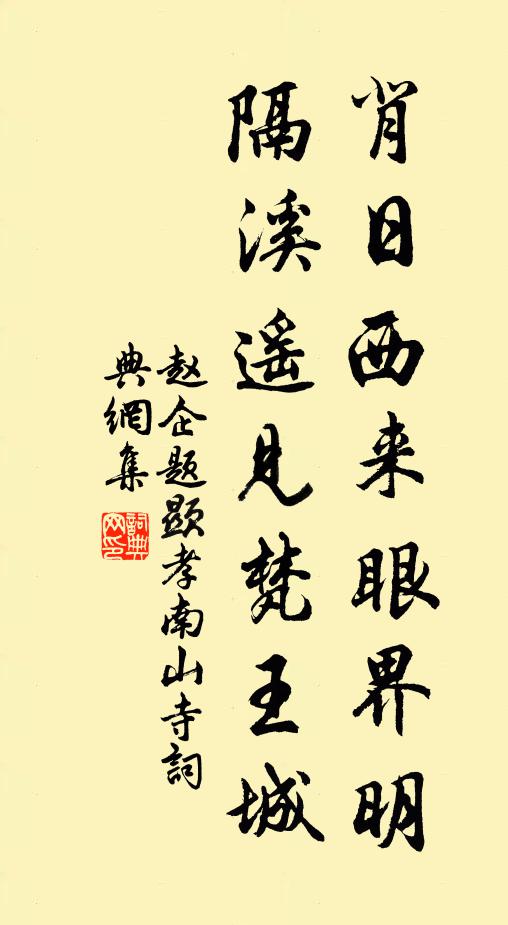 背日西来眼界明
隔溪遥见梵王城
赵企题顕孝南山寺詞
典網集
詞典網印